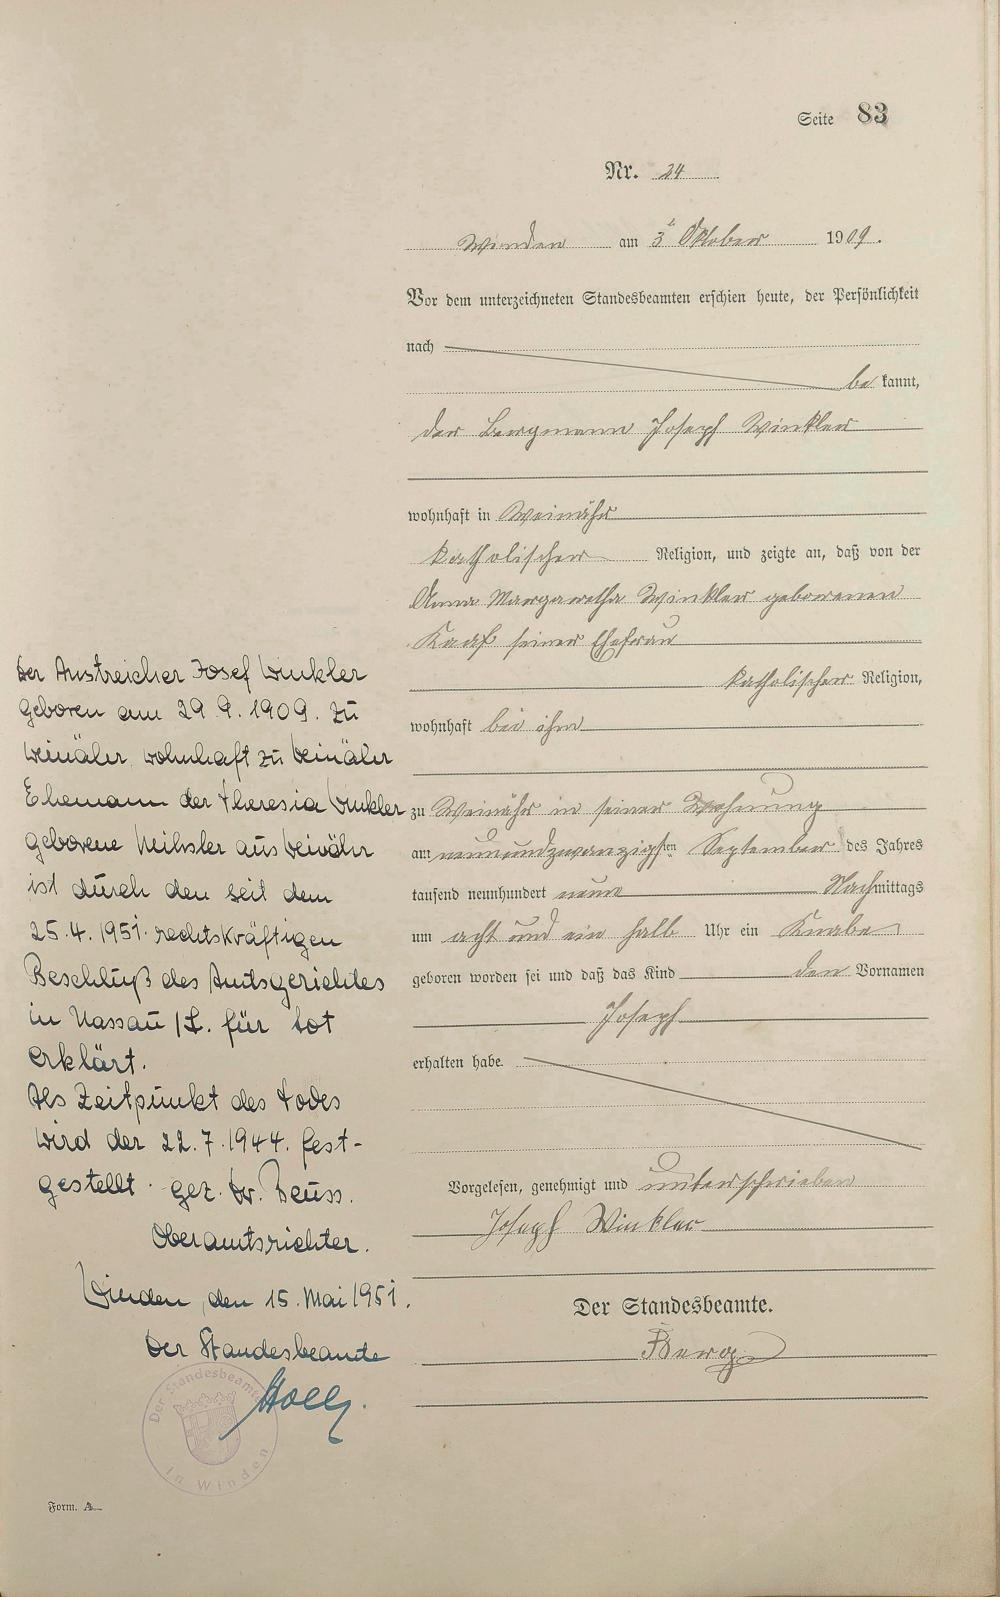 Seite 83
Nr. 24
Winden am 3t Oktober 1909.
Vor dem unterzeichneten Standesbeamten erschien heute, der Persönlichkeit
nach
be kannt,
der Bergmann Joseph Winkler
wohnhaft in Weinähr
katholischer Religion, und zeigte an, daß von der
Anna Margaretha Winkler geborenen
Kaaf seiner Ehefrau
katholischer Religion,
wohnhaft bei ihm
zu Weinähr in seiner Wohnung
am neunundzwanzigsten September des Jahres
tausend neunhundert neun Nachmittags
um acht und ein halb Uhr ein Knabe
geboren worden sei und daß das Kind den Vornamen
Joseph
erhalten habe.
Vorgelesen, genehmigt und unterschrieben
Joseph Winkler
Der Standesbeamte.
Berg
Der Anstreicher Josef Winkler
geboren am 29.9.1909. zu
Weinähr, wohnhaft zu Weinähr
Ehemann der Theresia Winkler
geborene aus Weinähr
ist durch den seit dem
25.4.1951. rechtskräftigen
Beschluß des Amtsgerichtes
in Nassau /L. für tot
erklärt.
Als Zeitpunkt des Todes
wird der 22.7.1944. fest-
gestellt. gez. Dr. Beuss.
Oberamtsrichter.
Winden, den 15. Mai 1951.
Der Standesbeamte
Der Standesbeamte
in Winden
Form. A